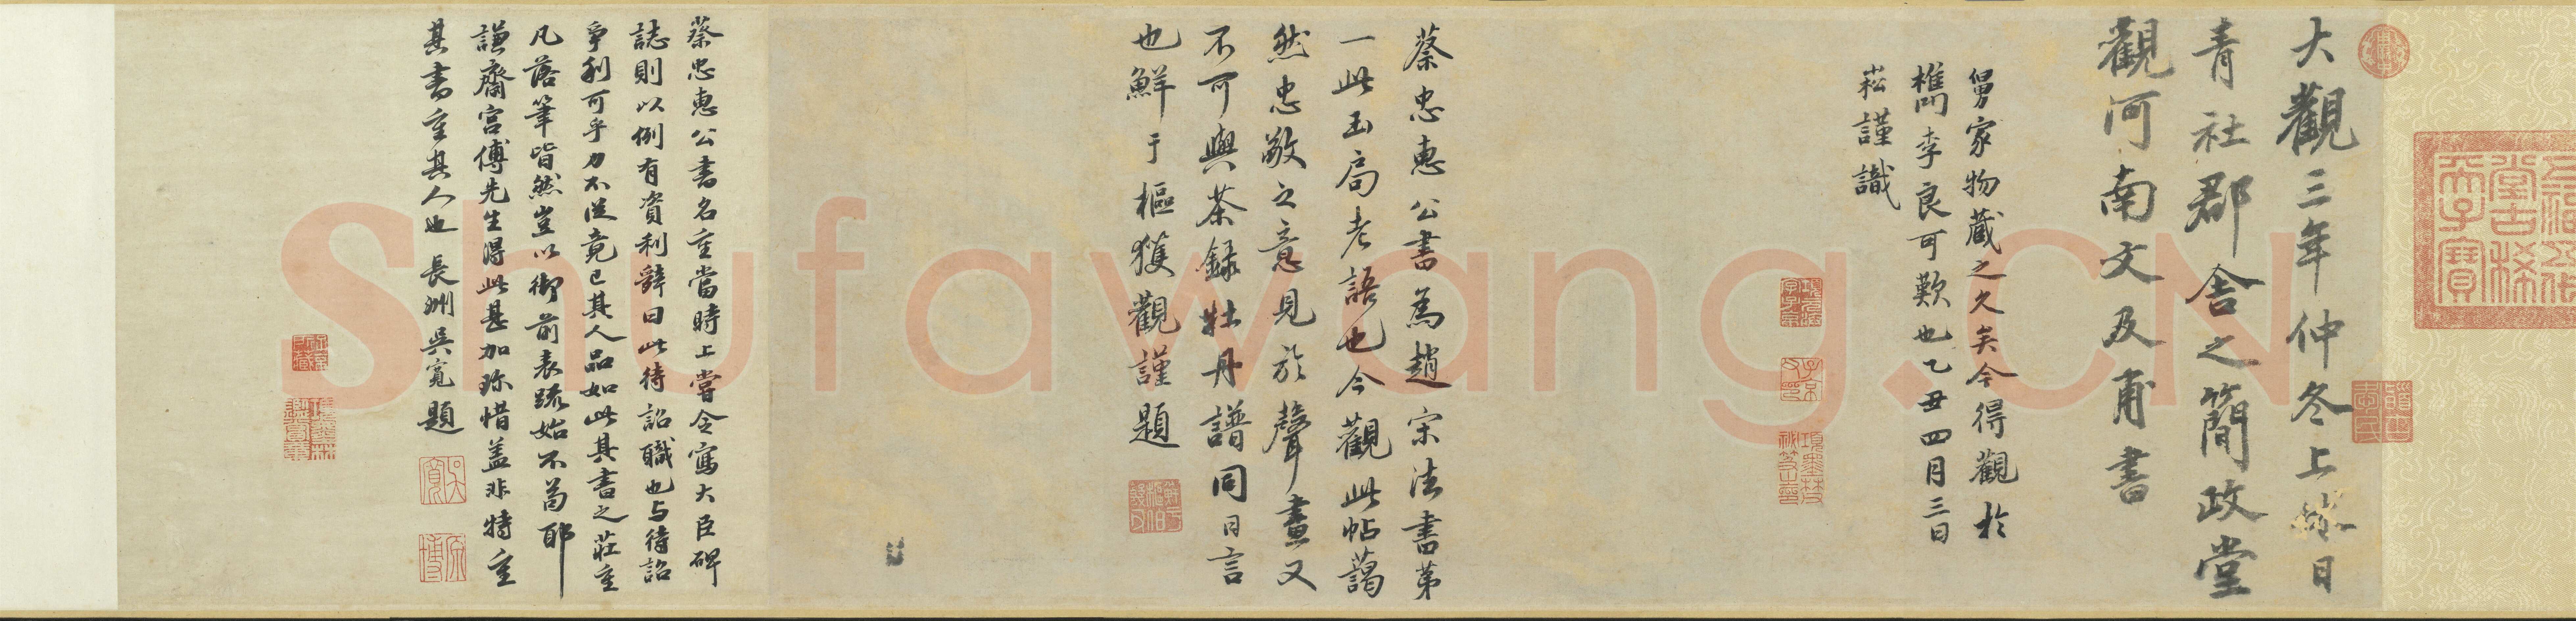 大觀三年仲冬上浣日
青社郡舍之簡政堂
觀河南文及甫書
舅家物藏之久矣今得觀於
檇李良可歎也乙丑四月三日
菘謹識
蔡忠惠公書為趙宋法書第
一此玉局老語也今觀此帖藹
然忠敬之意見於聲畫又
不可與茶錄牡丹譜同日言
也鮮于樞獲觀謹題
蔡忠惠公書名重當時上嘗令寫大臣碑
誌則以例有資利辭曰此待詔職也与待詔
爭利可乎力不從竟已其人品如此其書之莊重
凡落筆皆然豈以御前表疏始不苟耶
謙齋宫傅先生得此甚加珍惜盖非特重
其書重其人也 長洲吳寬題
Shufawang.CN